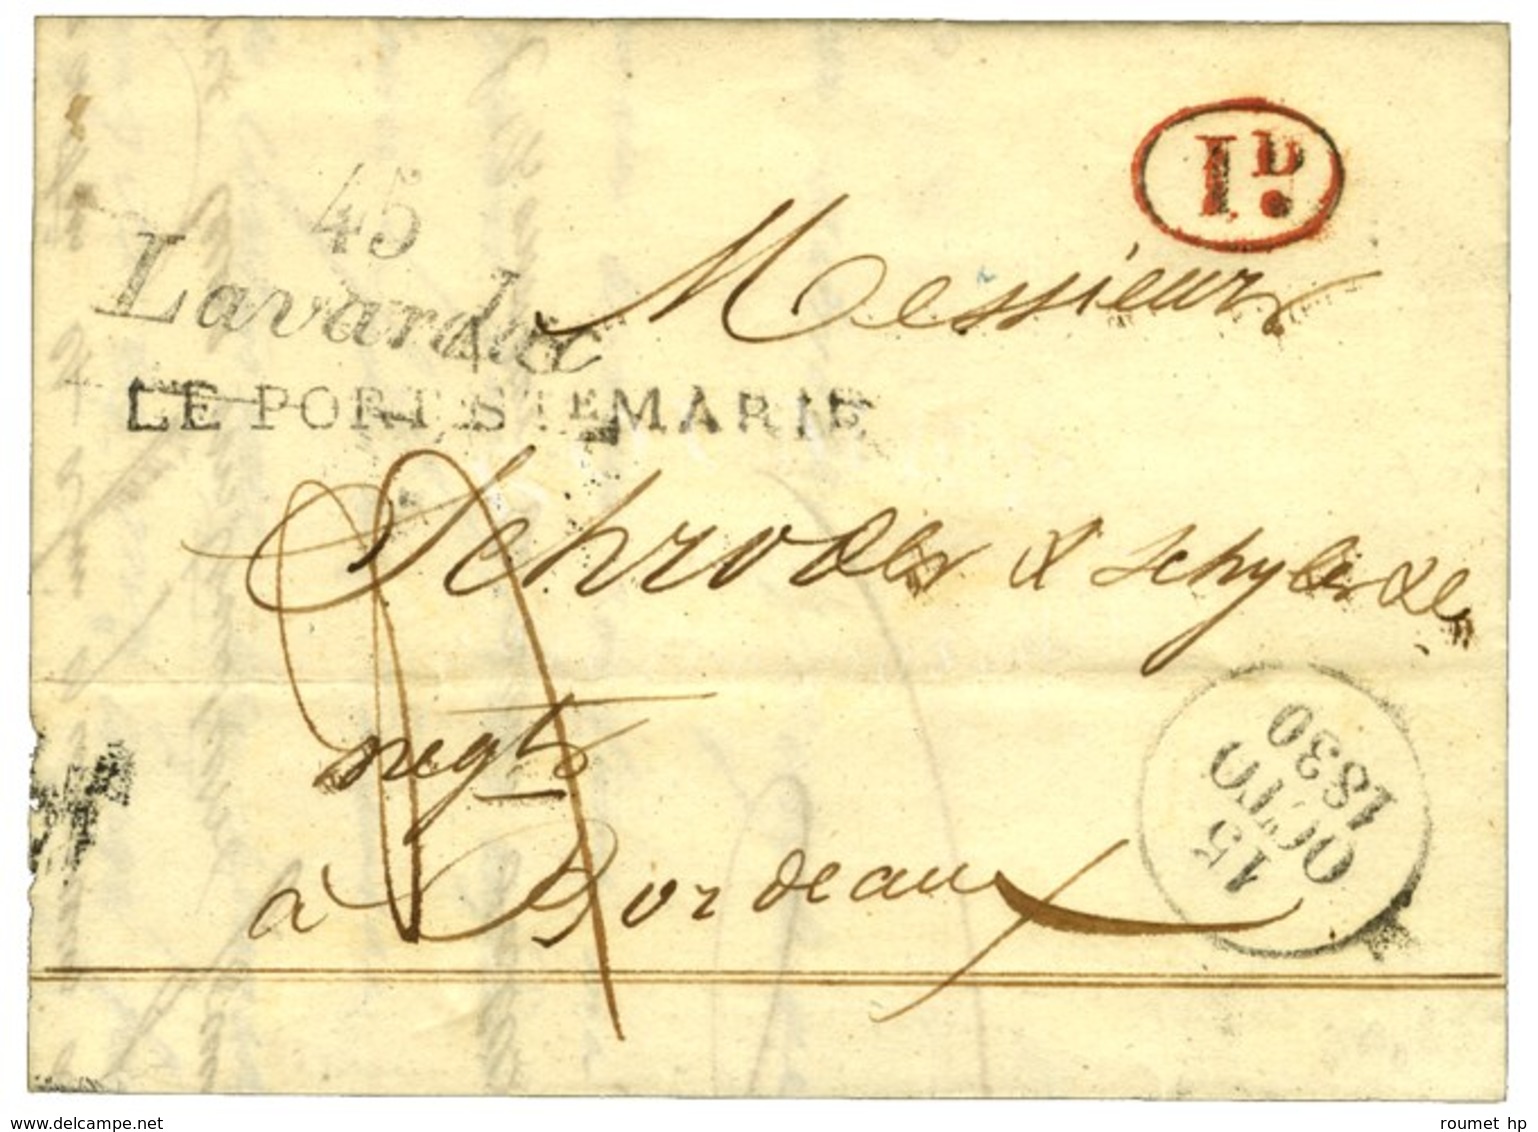 1D.
45
Lavardac
LE PORT STE MARIE
Messieurs
Schroder & Schyler & Ce
negts
à Bordeaux
15
OCTO
1830
roumet hp